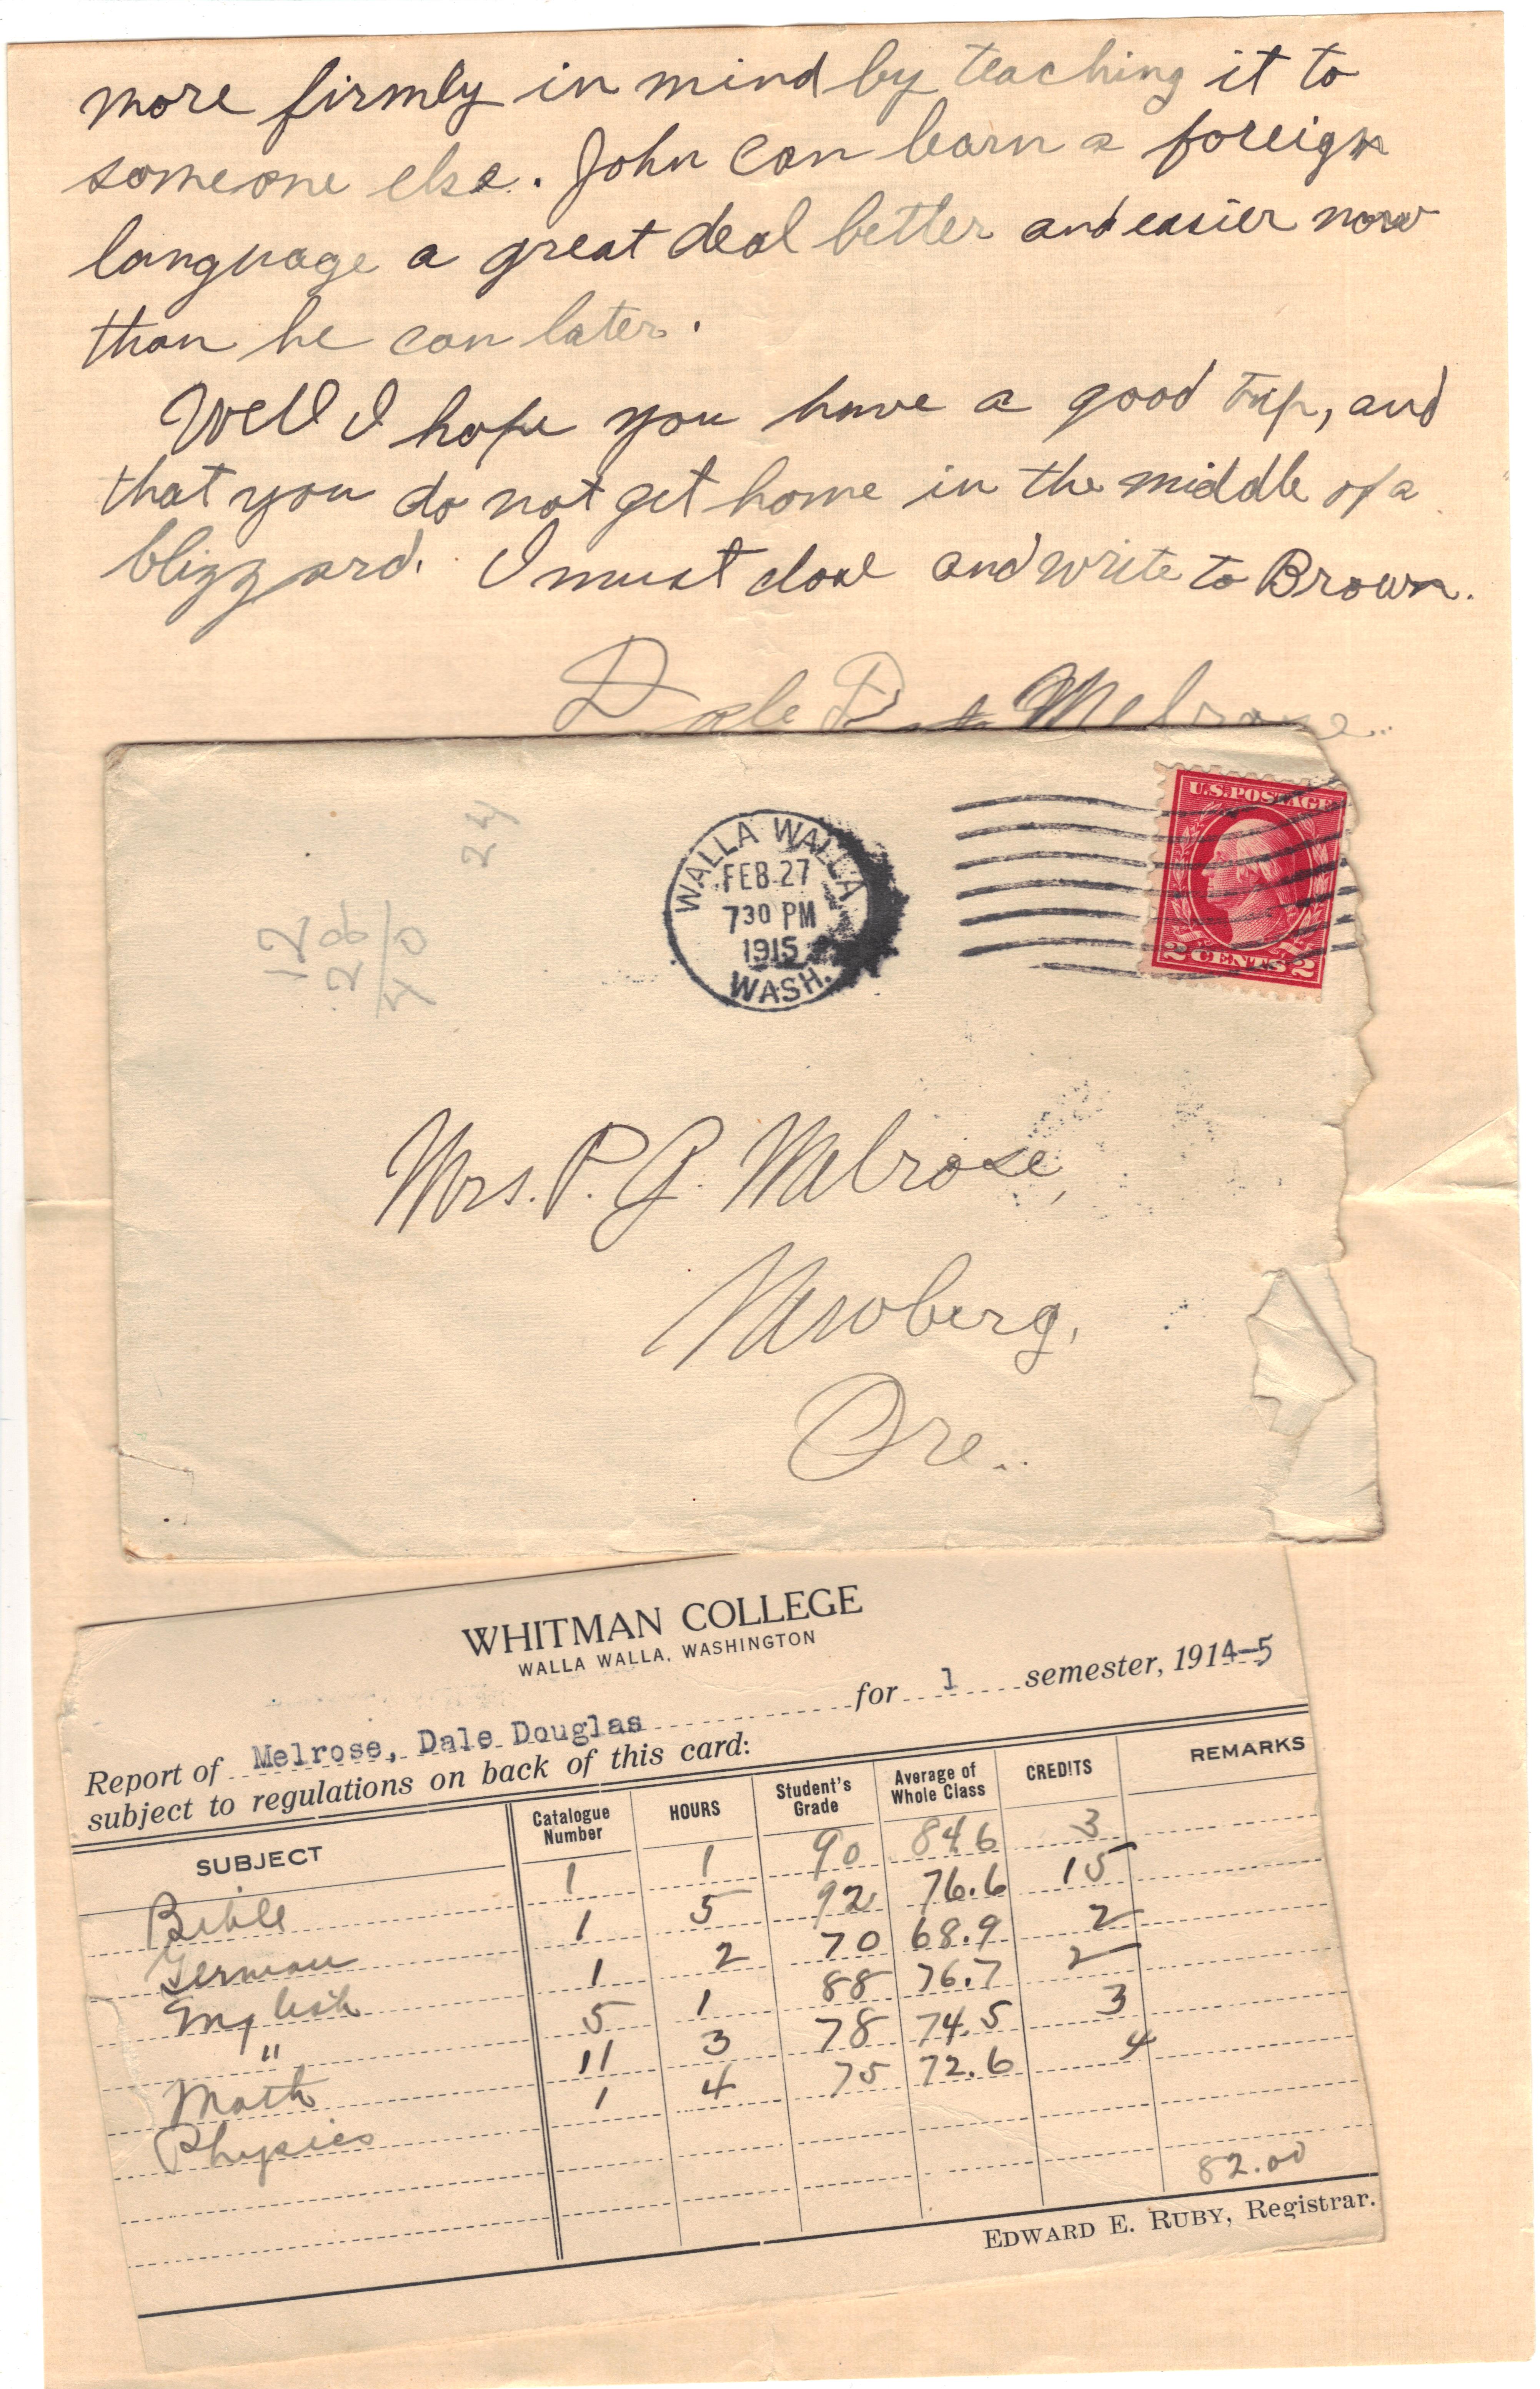 more firmly in mind by teaching it to
someone else. John can learn a foreign
language a great deal better and easier now
than he can later.
Well I hope you have a good trip, and
that you do not get home in the middle of a
blizzard. I must close and write to Brown.
Dale D Melrose.
24
12
28
40
WALLA WALLA
FEB 27
730 PM
1915
WASH.
U.S. POSTAGE
2 CENTS 2
Mrs. P. J. Melrose,
Newberg,
Ore.
WHITMAN COLLEGE
WALLA WALLA, WASHINGTON
Report of Melrose, Dale Douglas for 1 semester, 1914-5
subject to regulations on back of this card:
SUBJECT Catalogue Number HOURS Student's Grade Average of Whole Class CREDITS REMARKS
Bible 1 1 90 84.6 3
German 1 5 92 76.6 15
English 1 2 70 68.9 2
" 5 1 88 76.7 2
Math 11 3 78 74.5 3
Physics 1 4 75 72.6 4
82.00
EDWARD E. RUBY, Registrar.